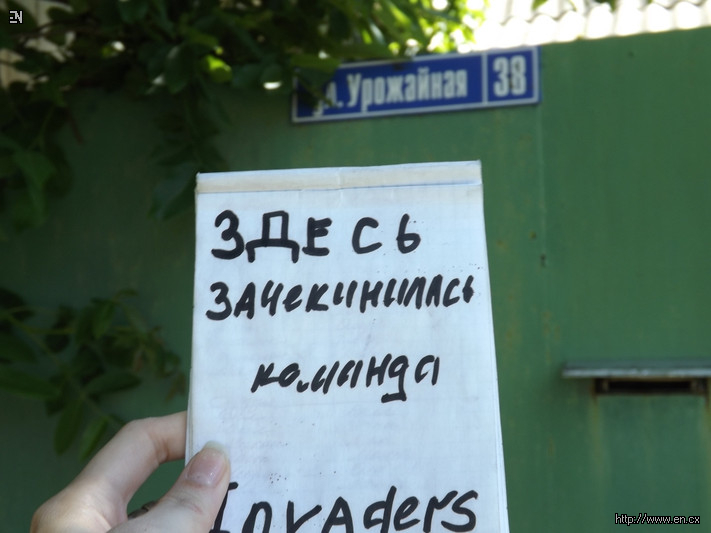 EN
ул. Урожайная 38
ЗДЕСЬ
зачекинилась
команда
Invaders
http://www.en.cx